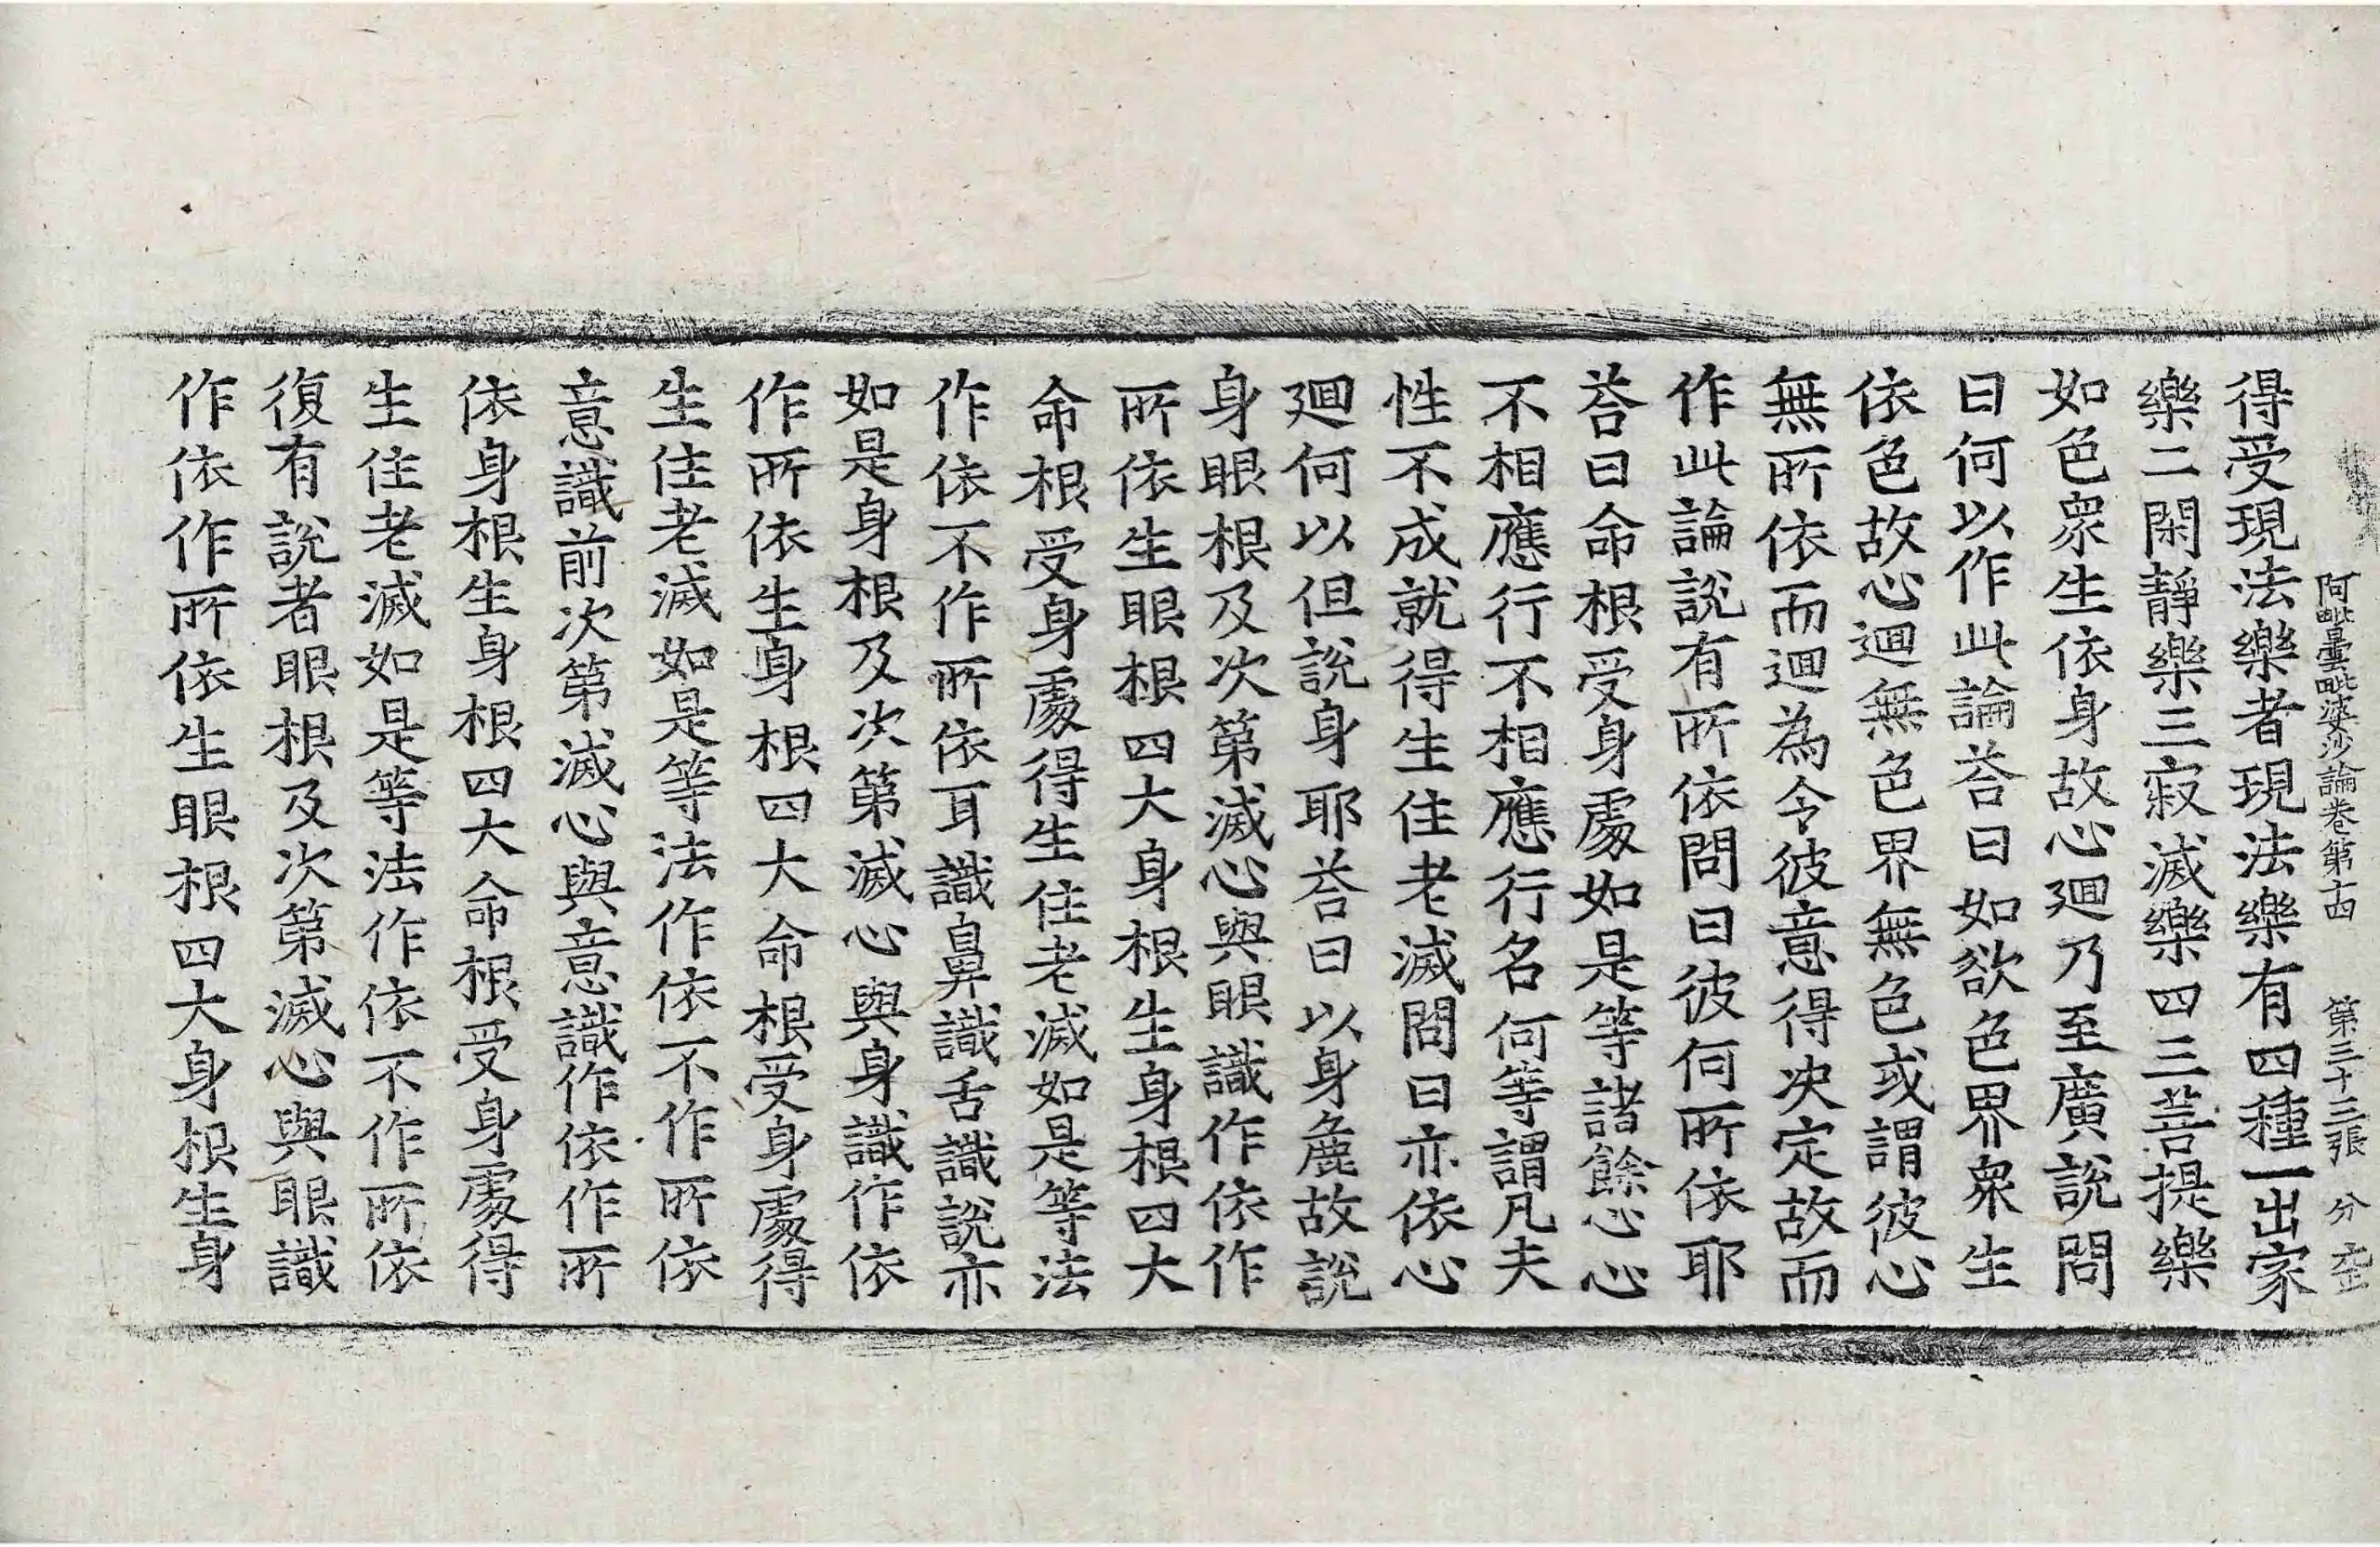 阿毗曇毗婆沙論卷第十四 第三十三張 分
得受現法樂者現法樂有四種一出家
樂二閑靜樂三寂滅樂四三菩提樂
如色衆生依身故心迴乃至廣說問
曰何以作此論荅曰如欲色界衆生
依色故心迴無色界無色或謂彼心
無所依而迴為令彼意得决定故而
作此論說有所依問曰彼何所依耶
荅曰命根受身處如是等諸餘心心
不相應行不相應行名何等謂凡夫
性不成就得生住老滅問曰亦依心
迴何以但說身耶荅曰以身麁故說
身眼根及次第滅心與眼識作依作
所依生眼根四大身根生身根四大
命根受身處得生住老滅如是等法
作依不作所依耳識鼻識舌識說亦
如是身根及次第滅心與身識作依
作所依生身根四大命根受身處得
生住老滅如是等法作依不作所依
意識前次第滅心與意識作依作所
依身根生身根四大命根受身處得
生住老滅如是等法作依不作所依
復有說者眼根及次第滅心與眼識
作依作所依生眼根四大身根生身